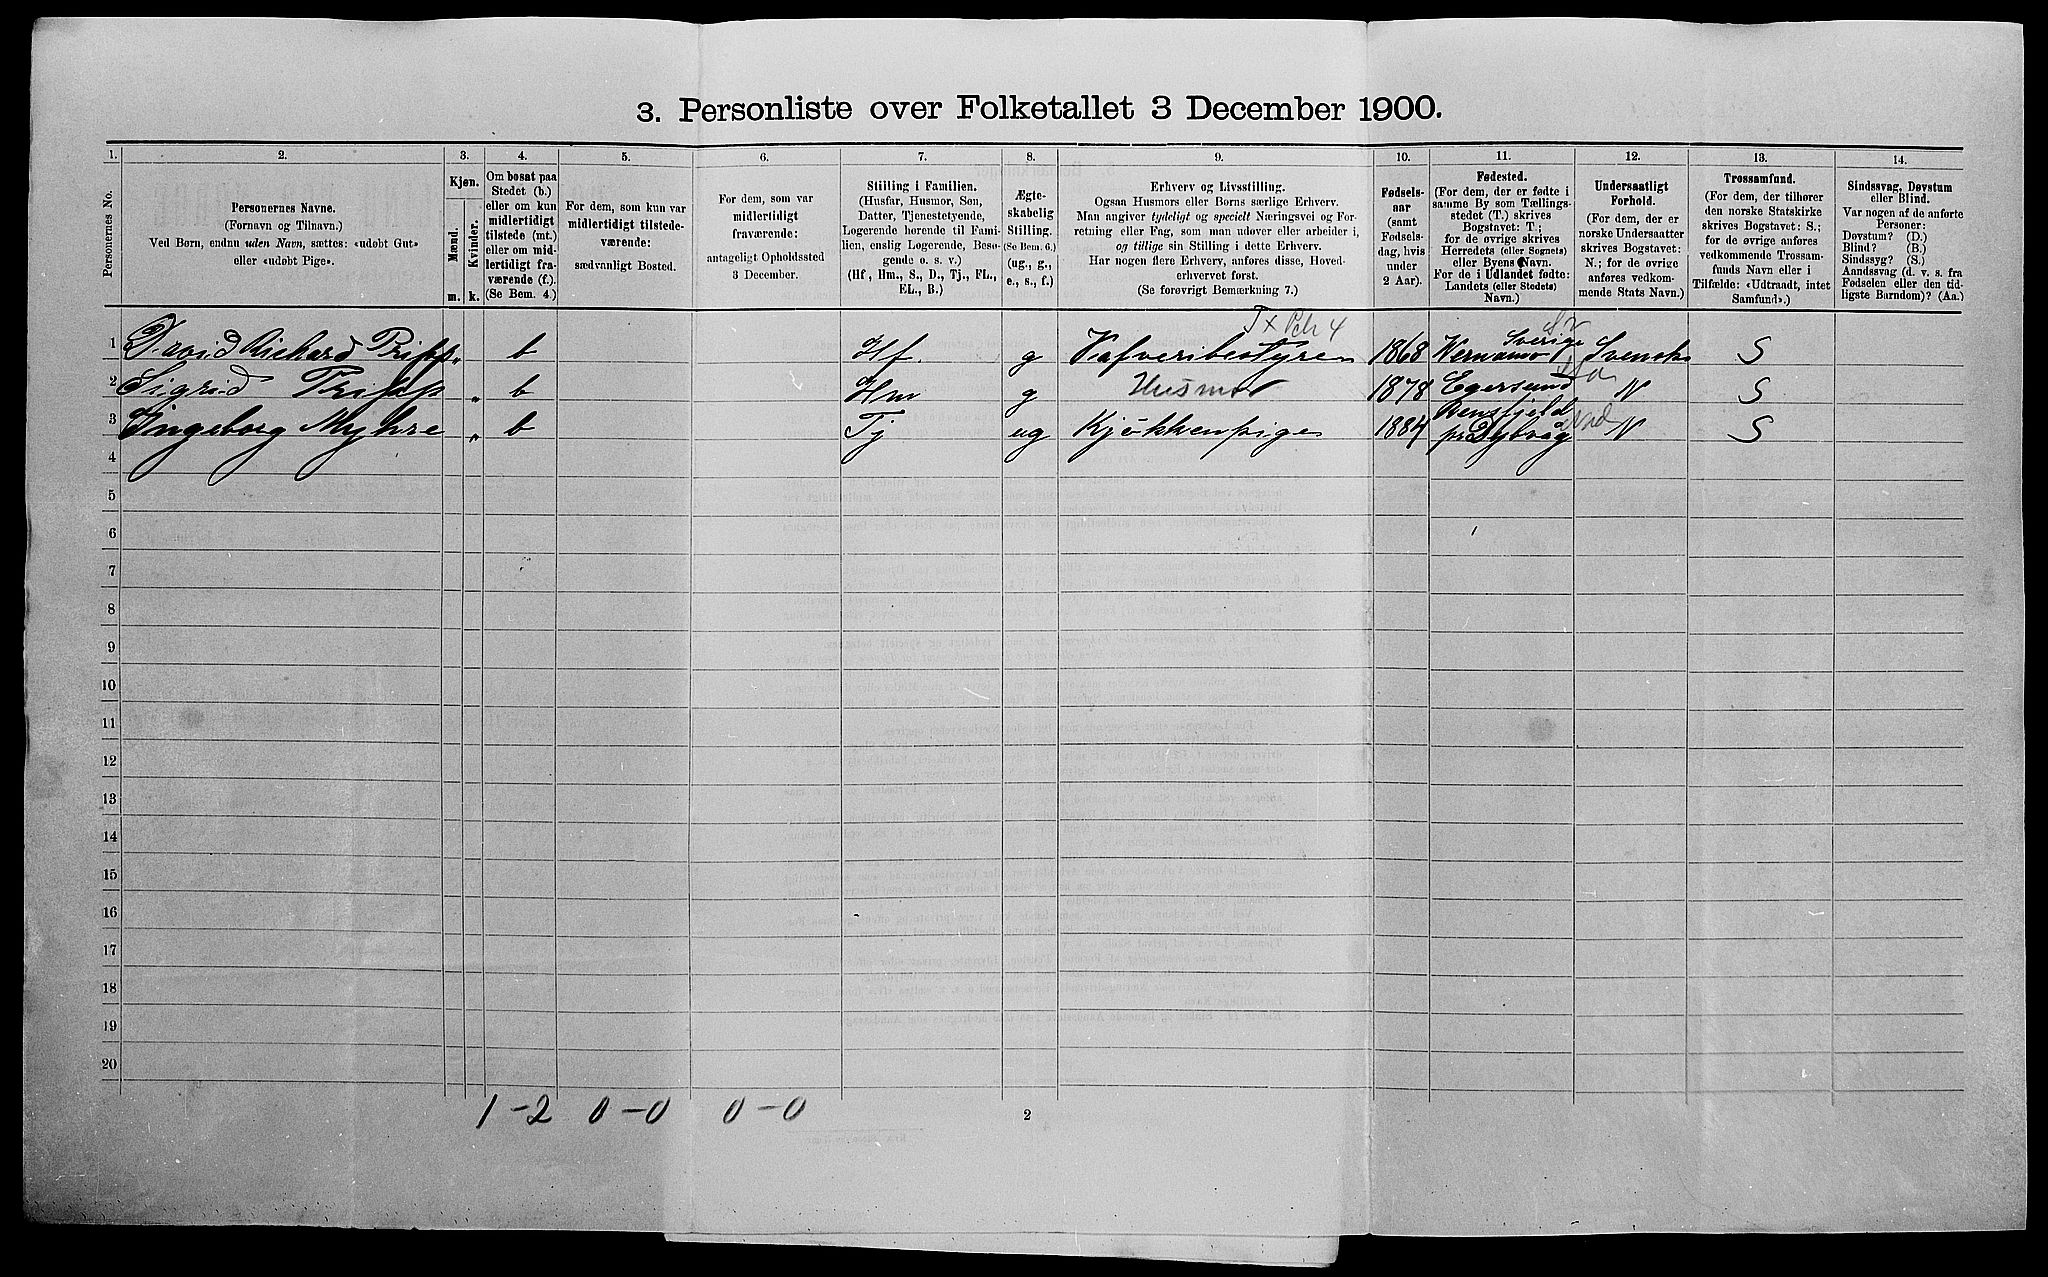 3. Personliste over Folketallet 3 December 1900.
1. 2. 3. 4. 5. 6. 7. 8. 9. 10. 11. 12. 13. 14.
Personernes No.
Personernes Navne.
(Fornavn og Tilnavn.)
Ved Børn, endnu uden Navn, sættes: «udøbt Gut»
eller «udøbt Pige».
Kjøn.
Mænd.
Kvinder.
m. k.
Om bosat paa
Stedet (b.)
eller om kun
midlertidigt
tilstede (mt.)
eller om mid-
lertidigt fra-
værende (f.).
(Se Bem. 4.)
For dem, som kun var
midlertidigt tilstede-
værende:
sædvanligt Bosted.
For dem, som var
midlertidigt
fraværende:
antageligt Opholdssted
3 December.
Stilling i Familien.
(Husfar, Husmor, Søn,
Datter, Tjenestetyende,
Logerende hørende til Fami-
lien, enslig Logerende, Besø-
gende o. s. v.)
(Hf, Hm., S., D., Tj., FL.,
EL., B.)
Ægte-
skabelig
Stilling.
(Se Bem. 6.)
(ug., g.,
e., s., f.)
Erhverv og Livsstilling.
Ogsaa Husmors eller Børns særlige Erhverv.
Man angiver tydeligt og specielt Næringsvei og For-
retning eller Fag, som man udøver eller arbeider i,
og tillige sin Stilling i dette Erhverv.
Har nogen flere Erhverv, anføres disse, Hoved-
erhvervet først.
(Se forøvrigt Bemærkning 7.)
Fødsels-
aar
(samt
Fødsels-
dag, hvis
under
2 Aar).
Fødested.
(For dem, der er fødte i
samme By som Tællings-
stedet (T.) skrives
Bogstavet: T;
for de øvrige skrives
Herredets (eller Sognets)
eller Byens Navn.
For de i Udlandet fødte:
Landets (eller Stedets)
Navn.)
Undersaatligt
Forhold.
(For dem, der er
norske Undersaatter
skrives Bogstavet:
N.; for de øvrige
anføres vedkom-
mende Stats Navn.)
Trossamfund.
(For dem, der tilhører
den norske Statskirke
skrives Bogstavet: S.;
for de øvrige anføres
vedkommende Trossam-
funds Navn eller i
Tilfælde: «Udtraadt, intet
Samfund».)
Sindssvag, Døvstum
eller Blind.
Var nogen af de anførte
Personer:
Døvstum? (D.)
Blind? (B.)
Sindssyg? (S.)
Aandssvag (d. v. s. fra
Fødselen eller den tid-
ligste Barndom)? (Aa.)
1 David Richard Tripp b Hf. g 1868 Wernamo Sverige Svensk S
2 Sigrid Tripp " b Hm g Husmor 1878 Egersund N S
3 Ingeborg Myhre " b Tj ug Kjøkkenpige 1884 N S
4
5
6
7
8
9
10
11
12
13
14
15
16
17
18
19
20
1-2 0-0 0-0
2